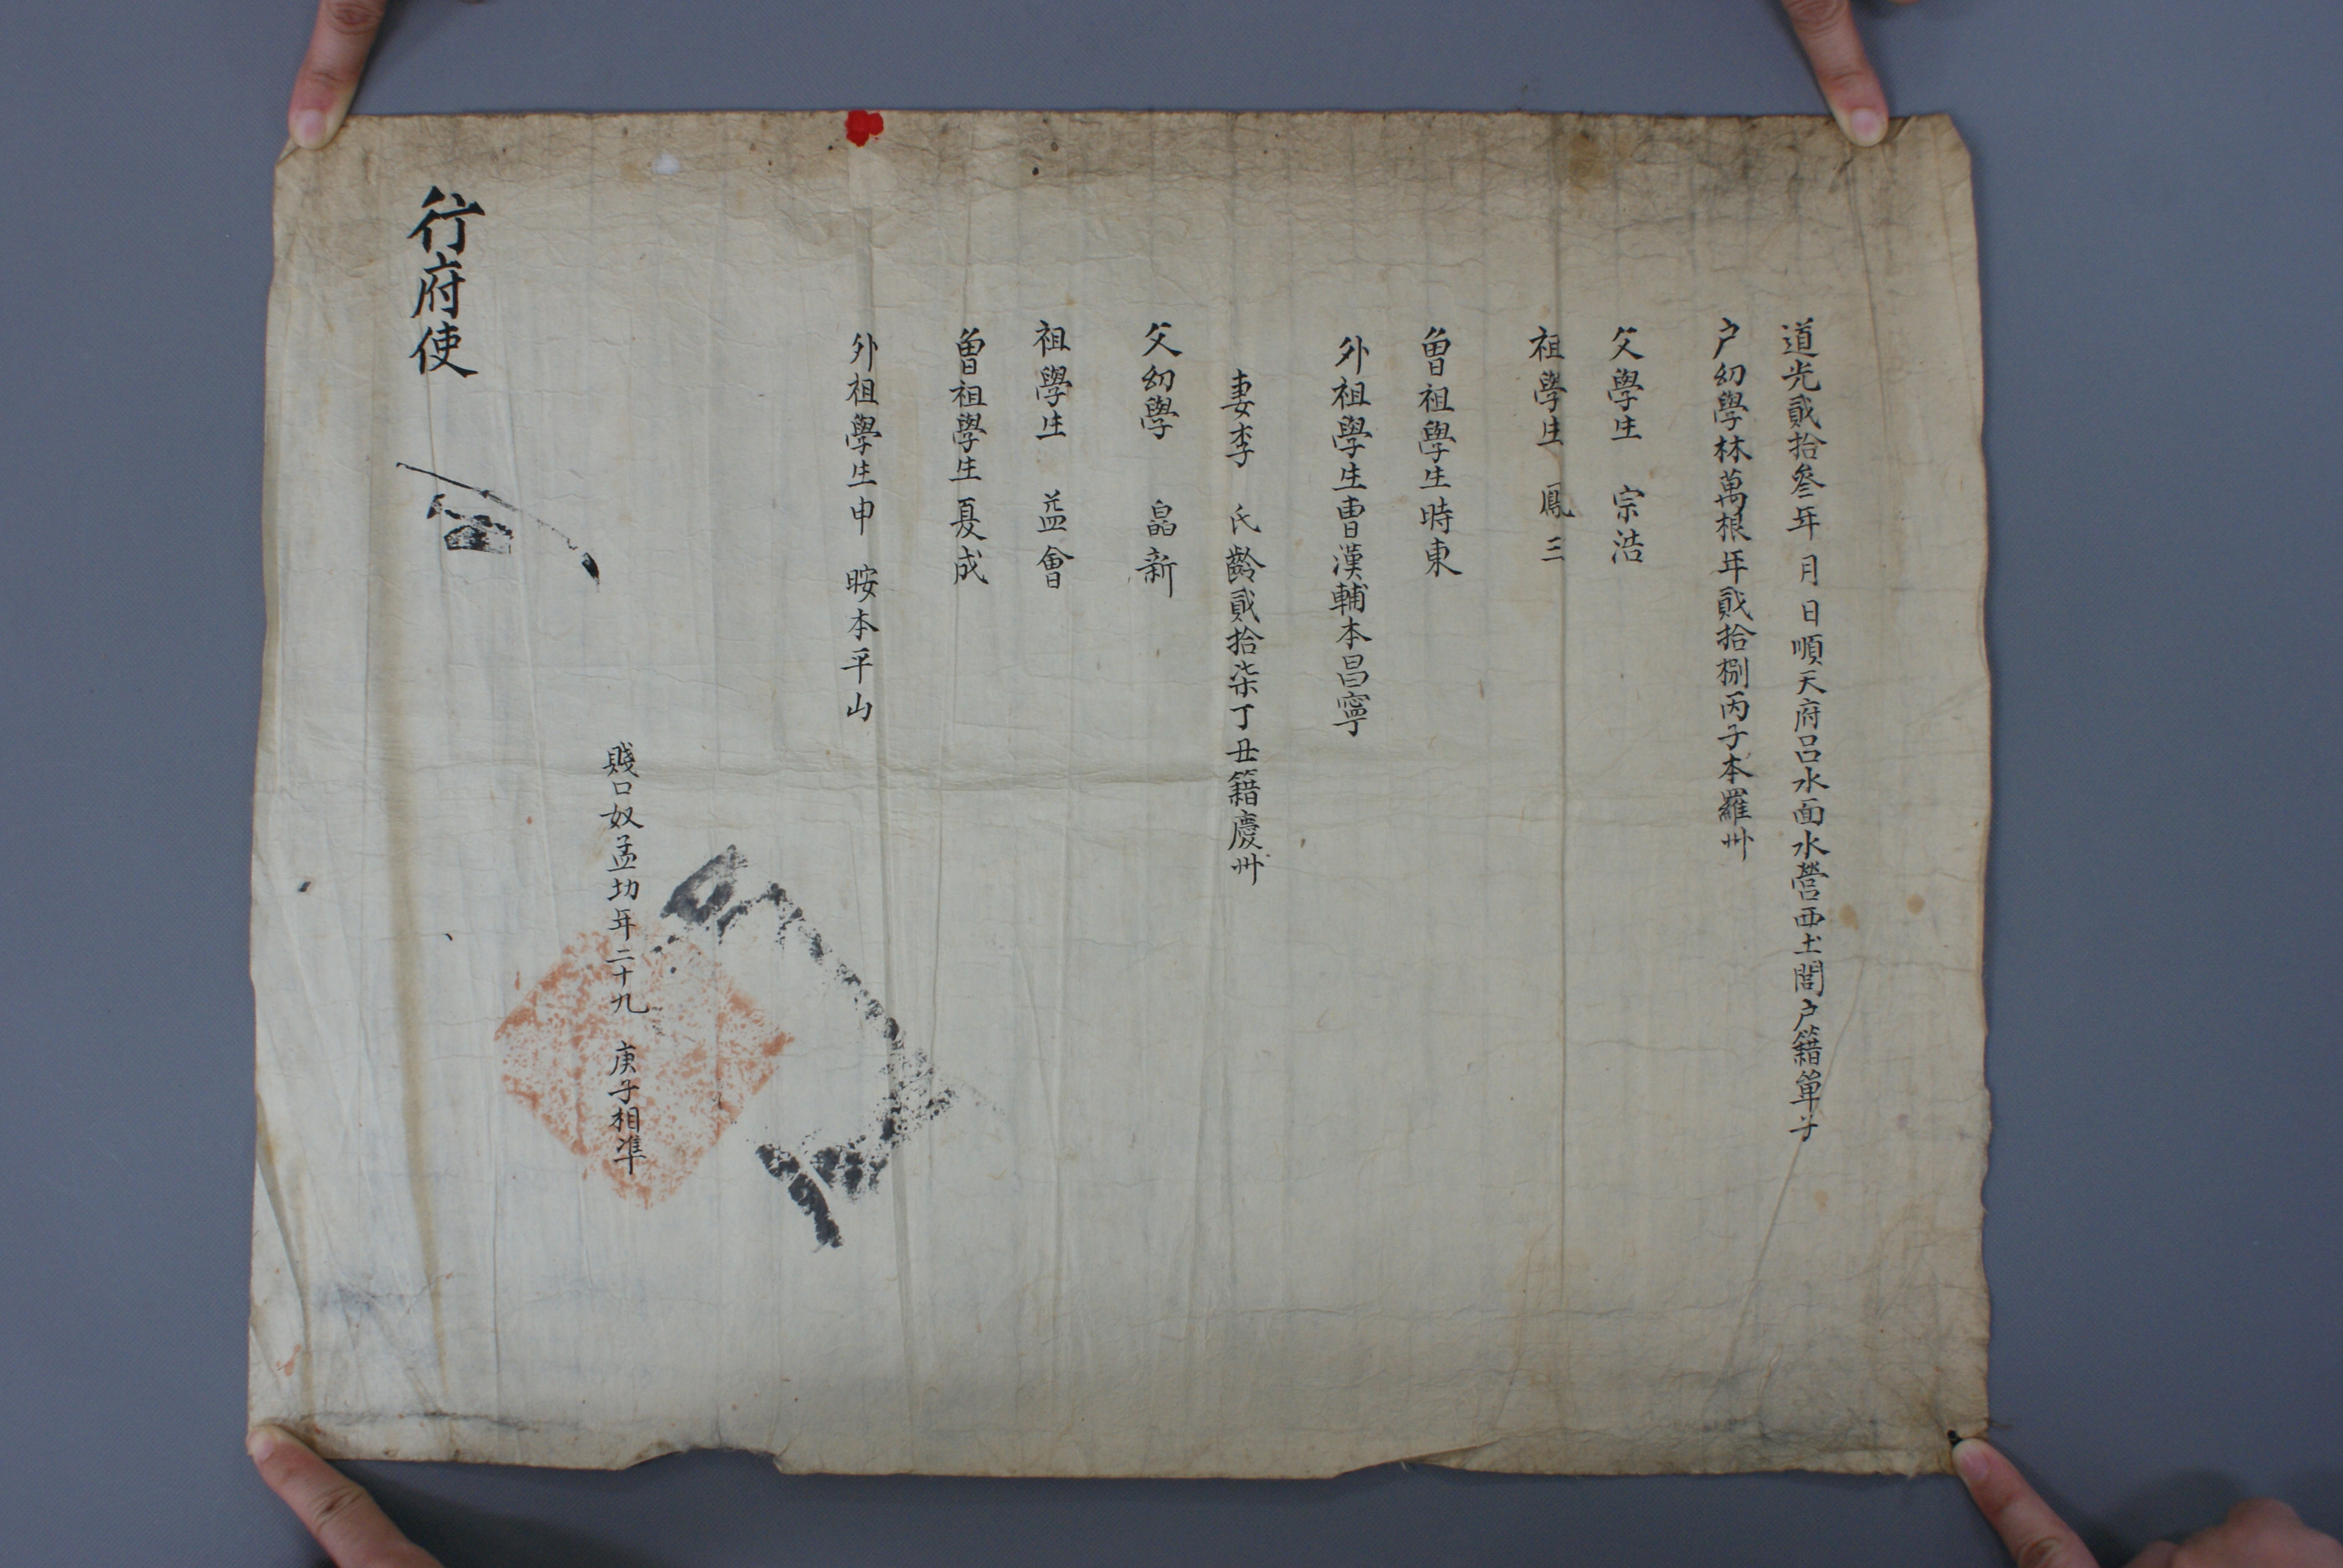 道光貳拾叄年 月 日順天府呂水面水營西土閭户籍單子
户幼學林萬根年貳拾捌丙子本羅州
父學生 宗浩
祖學生 鳳三
曾祖學生時東
外祖學生曺漢輔本昌寧
妻李 氏齡貳拾柒丁丑籍慶州
父幼學 晶新
祖學生 益會
曾祖學生夏成
外祖學生申 晈本平山
賤口奴孟㓛年二十九 庚子相準
行府使